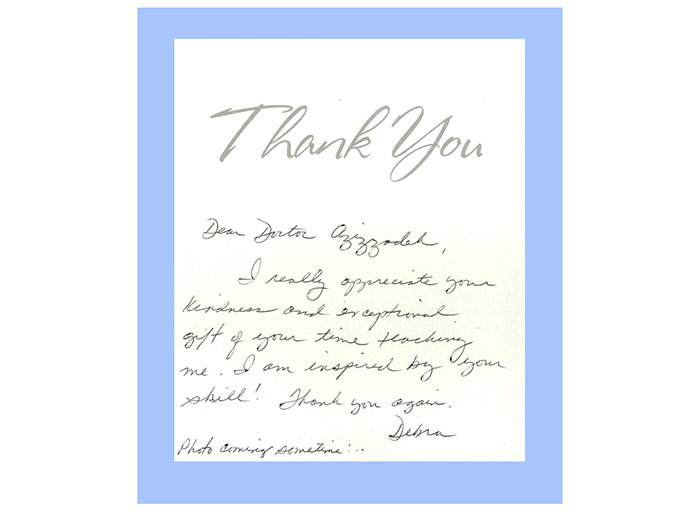 Thank You
Dear Doctor Azizzadeh,
I really appreciate your
kindness and exceptional
gift of your time teaching
me. I am inspired by your
skill! Thank you again.
Debra
Photo coming sometime...